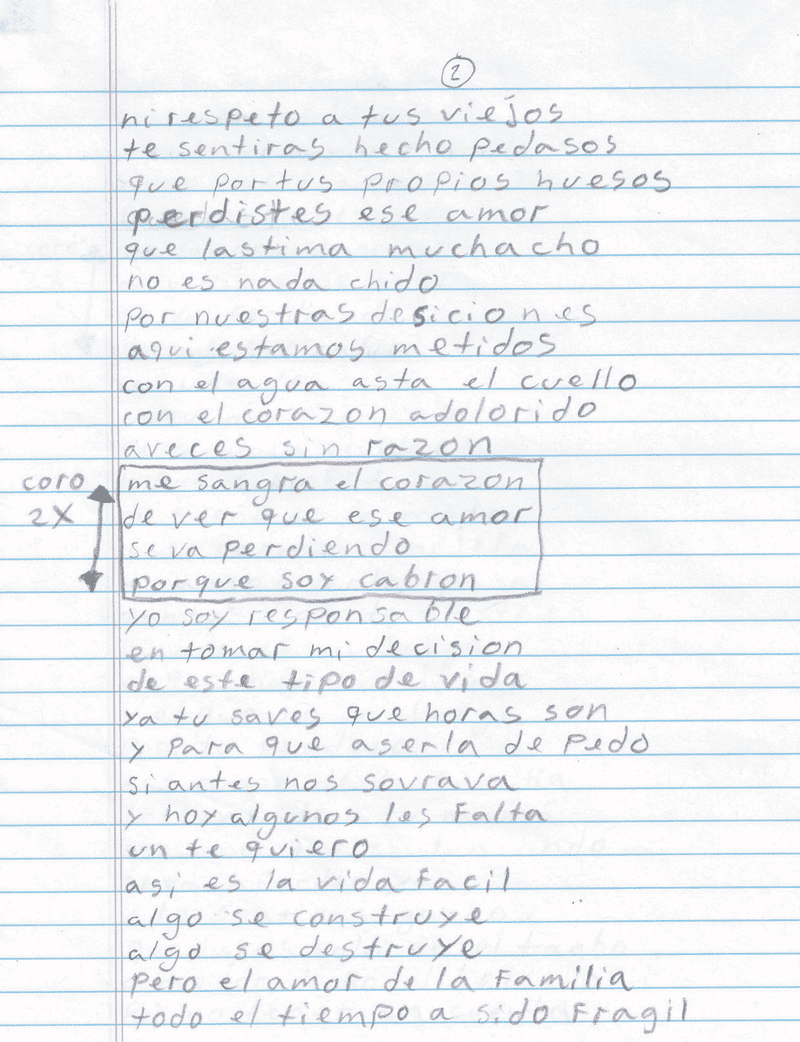 2
ni respeto a tus viejos
te sentiras hecho pedasos
que por tus propios huesos
perdistes ese amor
que lastima muchacho
no es nada chido
por nuestras desiciones
aqui estamos metidos
con el agua asta el cuello
con el corazon adolorido
aveces sin razon
coro
2X
me sangra el corazon
de ver que ese amor
se va perdiendo
porque soy cabron
yo soy responsable
en tomar mi decision
de este tipo de vida
ya tu saves que horas son
y para que aserla de pedo
si antes nos sovrava
y hoy algunos les falta
un te quiero
asi es la vida facil
algo se construye
algo se destruye
pero el amor de la familia
todo el tiempo a sido fragil